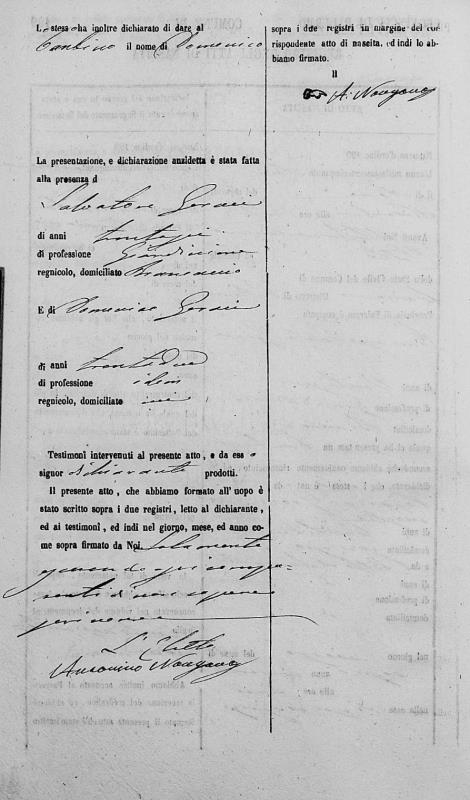 Lo stess o ha inoltre dichiarato di dare al
Bambino il nome di Domenico
La presentazione, e dichiarazione anzidetta è stata fatta
alla presenza d
Salvatore Geraci
di anni trentasei
di professione Giardiniere
regnicolo, domiciliato Brancaccio
E di Domenico Geraci
di anni trentadue
di professione idem
regnicolo, domiciliato ivi
Testimonî intervenuti al presente atto, e da ess o
signor dichiarante prodotti.
Il presente atto, che abbiamo formato all'uopo è
stato scritto sopra i due registri, letto al dichiarante,
ed ai testimonî, ed indi nel giorno, mese, ed anno co-
me sopra firmato da Noi. Solamente
avendo gli compa-
renti di non sapere
scrivere
L'Eletto
Antonino
sopra i due registri in margine del cor-
rispondente atto di nascita, ed indi lo ab-
biamo firmato.
Il
A.